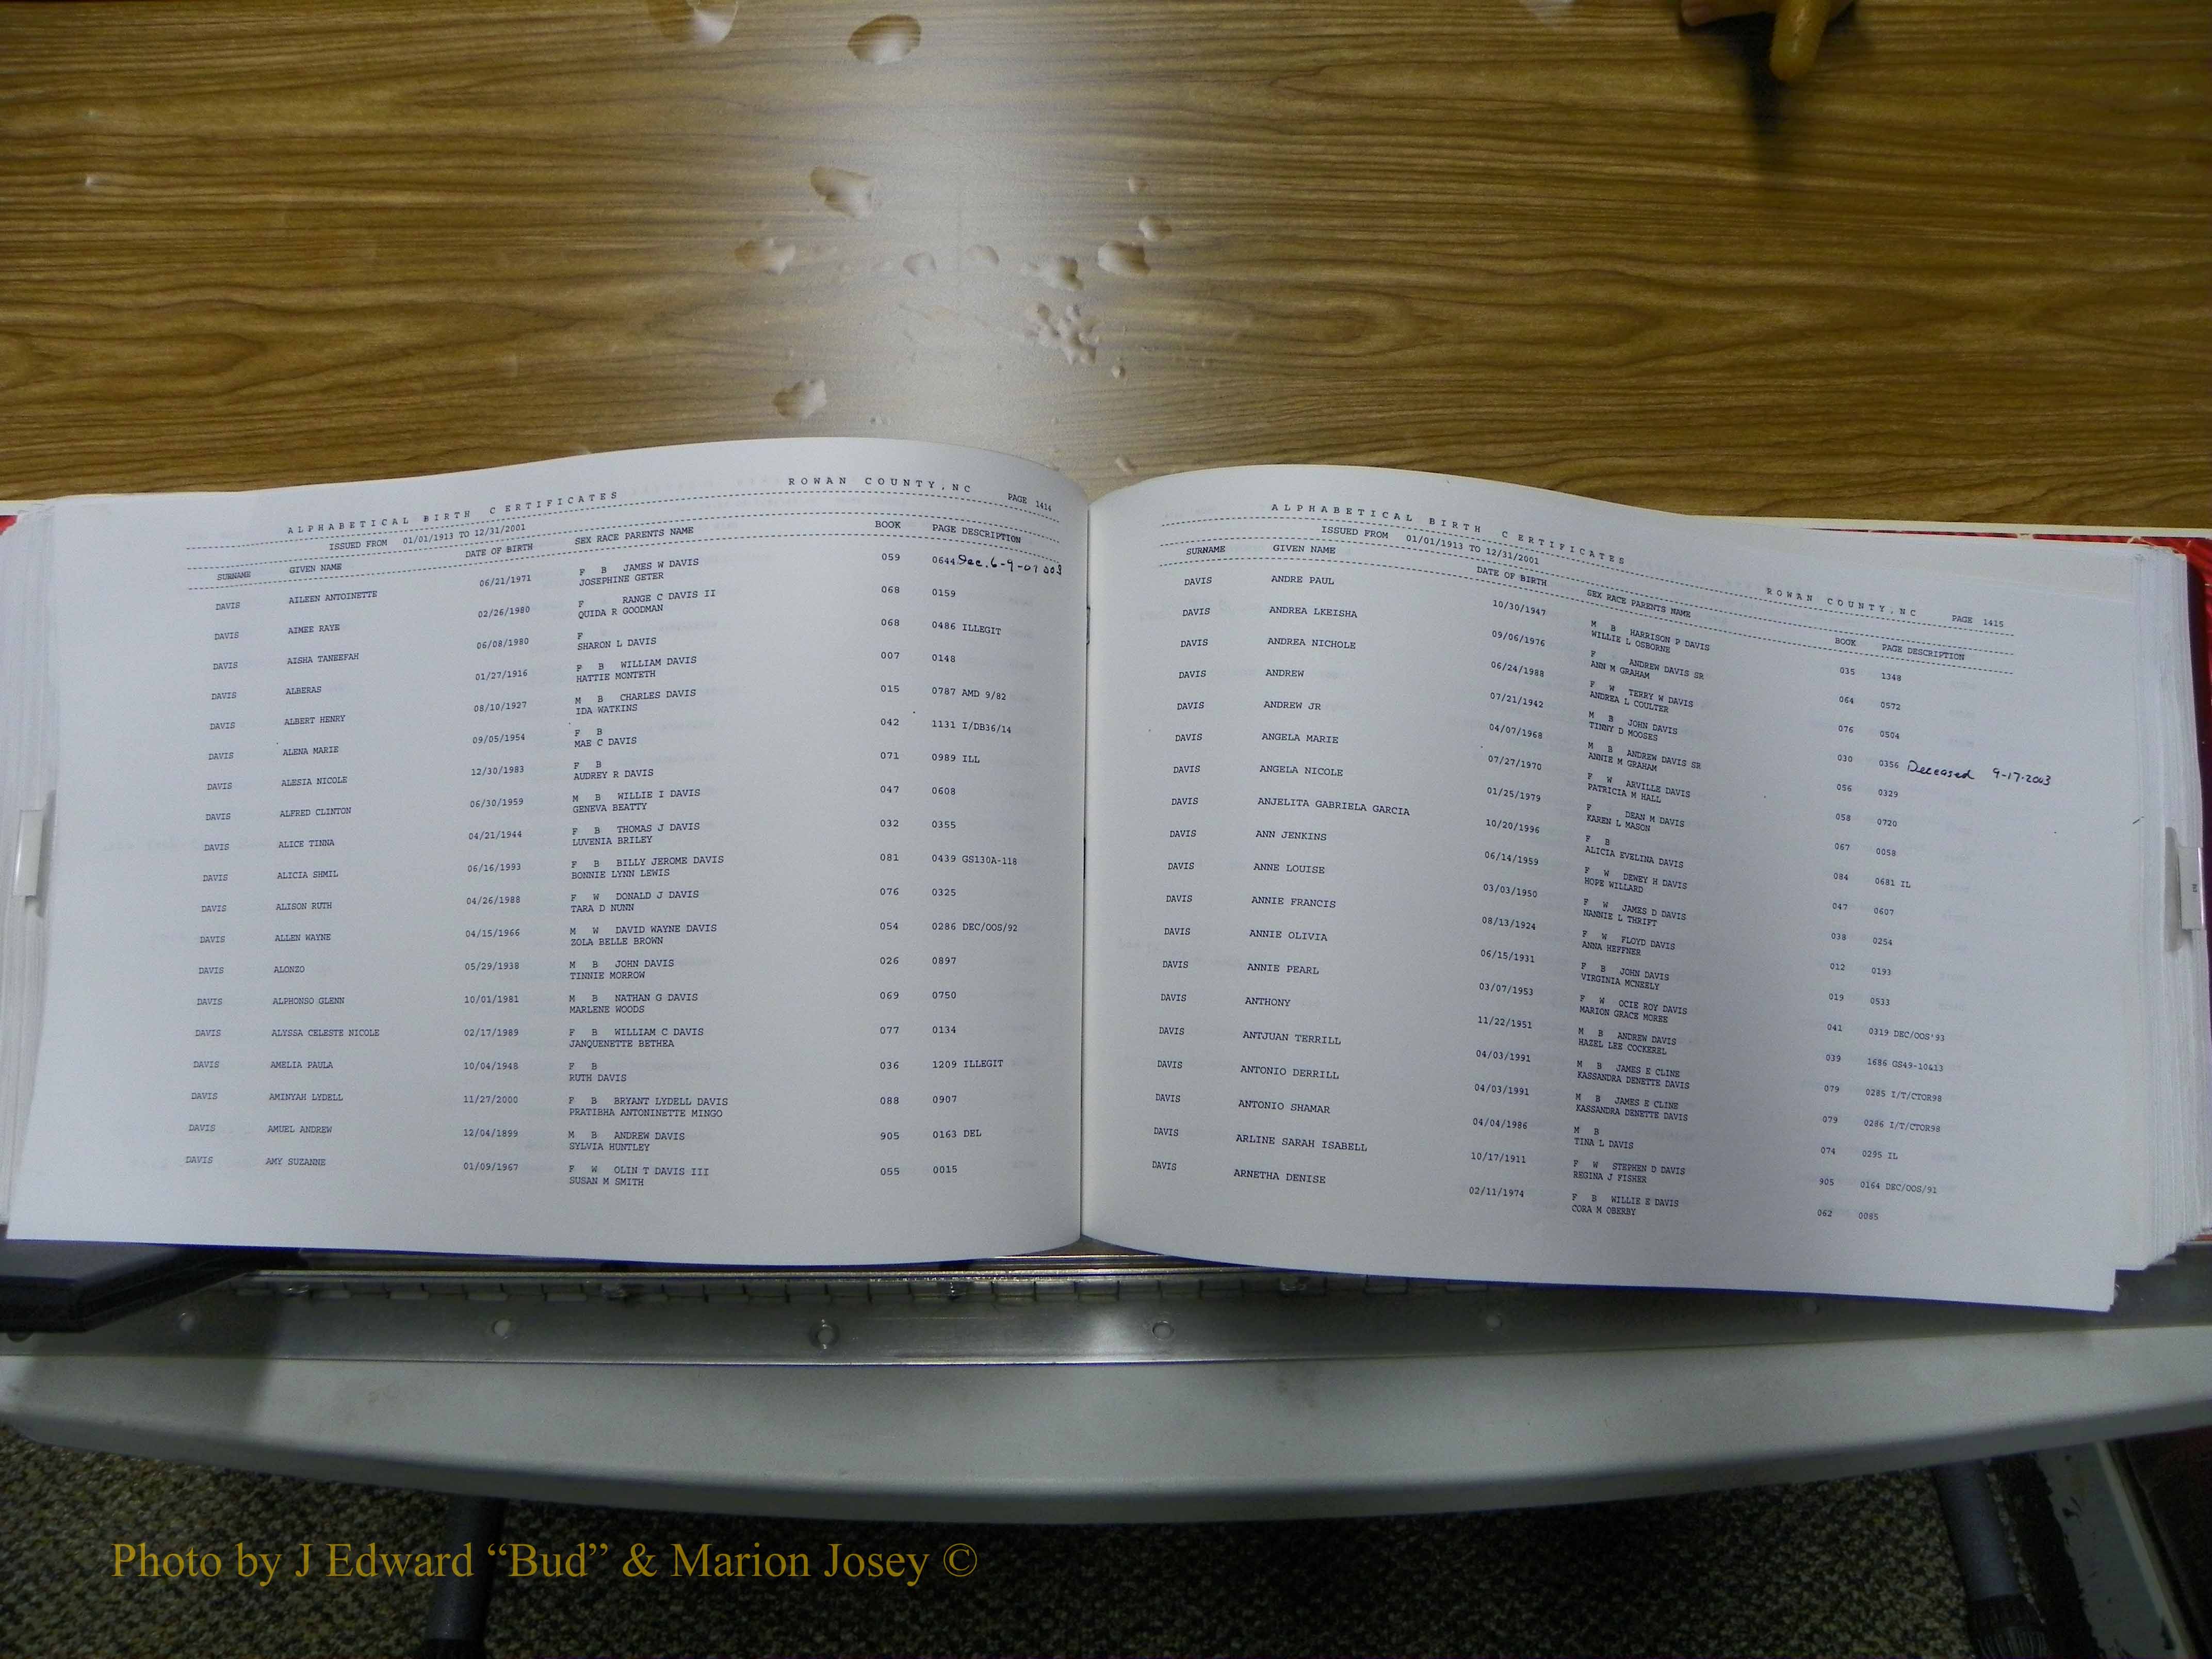 ALPHABETICAL BIRTH CERTIFICATES ROWAN COUNTY, NC PAGE 1414
ISSUED FROM 01/01/1913 TO 12/31/2001
SURNAME GIVEN NAME DATE OF BIRTH SEX RACE PARENTS NAME BOOK PAGE DESCRIPTION
DAVIS AILEEN ANTOINETTE 06/21/1971 F B JAMES W DAVIS 059 0644 Dec. 6-9-07
JOSEPHINE GETER
DAVIS AIMEE RAYE 02/26/1980 F RANGE C DAVIS II 068 0159
QUIDA R GOODMAN
DAVIS AISHA TANEEFAH 06/08/1980 F 068 0486 ILLEGIT
SHARON L DAVIS
DAVIS ALBERAS 01/27/1916 F B WILLIAM DAVIS 007 0148
HATTIE MONTETH
DAVIS ALBERT HENRY 08/10/1927 M B CHARLES DAVIS 015 0787 AMD 9/82
IDA WATKINS
DAVIS ALENA MARIE 09/05/1954 F B 042 1131 I/DB36/14
MAE C DAVIS
DAVIS ALESIA NICOLE 12/30/1983 F B 071 0989 ILL
AUDREY R DAVIS
DAVIS ALFRED CLINTON 06/30/1959 M B WILLIE I DAVIS 047 0608
GENEVA BEATTY
DAVIS ALICE TINNA 04/21/1944 F B THOMAS J DAVIS 032 0355
LUVENIA BRILEY
DAVIS ALICIA SHMIL 06/16/1993 F B BILLY JEROME DAVIS 081 0439 GS130A-118
BONNIE LYNN LEWIS
DAVIS ALISON RUTH 04/26/1988 F W DONALD J DAVIS 076 0325
TARA D NUNN
DAVIS ALLEN WAYNE 04/15/1966 M W DAVID WAYNE DAVIS 054 0286 DEC/OOS/92
ZOLA BELLE BROWN
DAVIS ALONZO 05/29/1938 M B JOHN DAVIS 026 0897
TINNIE MORROW
DAVIS ALPHONSO GLENN 10/01/1981 M B NATHAN G DAVIS 069 0750
MARLENE WOODS
DAVIS ALYSSA CELESTE NICOLE 02/17/1989 F B WILLIAM C DAVIS 077 0134
JANQUENETTE BETHEA
DAVIS AMELIA PAULA 10/04/1948 F B 036 1209 ILLEGIT
RUTH DAVIS
DAVIS AMINYAH LYDELL 11/27/2000 F B BRYANT LYDELL DAVIS 088 0907
PRATIBHA ANTONINETTE MINGO
DAVIS AMUEL ANDREW 12/04/1899 M B ANDREW DAVIS 905 0163 DEL
SYLVIA HUNTLEY
DAVIS AMY SUZANNE 01/09/1967 F W OLIN T DAVIS III 055 0015
SUSAN M SMITH
ALPHABETICAL BIRTH CERTIFICATES ROWAN COUNTY, NC PAGE 1415
ISSUED FROM 01/01/1913 TO 12/31/2001
SURNAME GIVEN NAME DATE OF BIRTH SEX RACE PARENTS NAME BOOK PAGE DESCRIPTION
DAVIS ANDRE PAUL 10/30/1947 M B HARRISON P DAVIS 035 1348
WILLIE L OSBORNE
DAVIS ANDREA LKEISHA 09/06/1976 F ANDREW DAVIS SR 064 0572
ANN M GRAHAM
DAVIS ANDREA NICHOLE 06/24/1988 F W TERRY W DAVIS 076 0504
ANDREA L COULTER
DAVIS ANDREW 07/21/1942 M B JOHN DAVIS 030 0356 Deceased 9-17-2003
TINNY D MOOSES
DAVIS ANDREW JR 04/07/1968 M B ANDREW DAVIS SR 056 0329
ANNIE M GRAHAM
DAVIS ANGELA MARIE 07/27/1970 F W ARVILLE DAVIS 058 0720
PATRICIA M HALL
DAVIS ANGELA NICOLE 01/25/1979 F DEAN M DAVIS 067 0058
KAREN L MASON
DAVIS ANJELITA GABRIELA GARCIA 10/20/1996 F B 084 0681 IL
ALICIA EVELINA DAVIS
DAVIS ANN JENKINS 06/14/1959 F W DEWEY H DAVIS 047 0607
HOPE WILLARD
DAVIS ANNE LOUISE 03/03/1950 F W JAMES D DAVIS 038 0254
NANNIE L THRIFT
DAVIS ANNIE FRANCIS 08/13/1924 F W FLOYD DAVIS 012 0193
ANNA HEFFNER
DAVIS ANNIE OLIVIA 06/15/1931 F B JOHN DAVIS 019 0533
VIRGINIA MCNEELY
DAVIS ANNIE PEARL 03/07/1953 F W OCIE ROY DAVIS 041 0319 DEC/OOS'93
MARION GRACE MOREE
DAVIS ANTHONY 11/22/1951 M B ANDREW DAVIS 039 1686 GS49-10&13
HAZEL LEE COCKEREL
DAVIS ANTJUAN TERRILL 04/03/1991 M B JAMES E CLINE 079 0285 I/T/CTOR98
KASSANDRA DENETTE DAVIS
DAVIS ANTONIO DERRILL 04/03/1991 M B JAMES E CLINE 079 0286 I/T/CTOR98
KASSANDRA DENETTE DAVIS
DAVIS ANTONIO SHAMAR 04/04/1986 M B 074 0295 IL
TINA L DAVIS
DAVIS ARLINE SARAH ISABELL 10/17/1911 F W STEPHEN D DAVIS 905 0164 DEC/OOS/91
REGINA J FISHER
DAVIS ARNETHA DENISE 02/11/1974 F B WILLIE E DAVIS 062 0085
CORA M OBERBY
Photo by J Edward “Bud” & Marion Josey ©